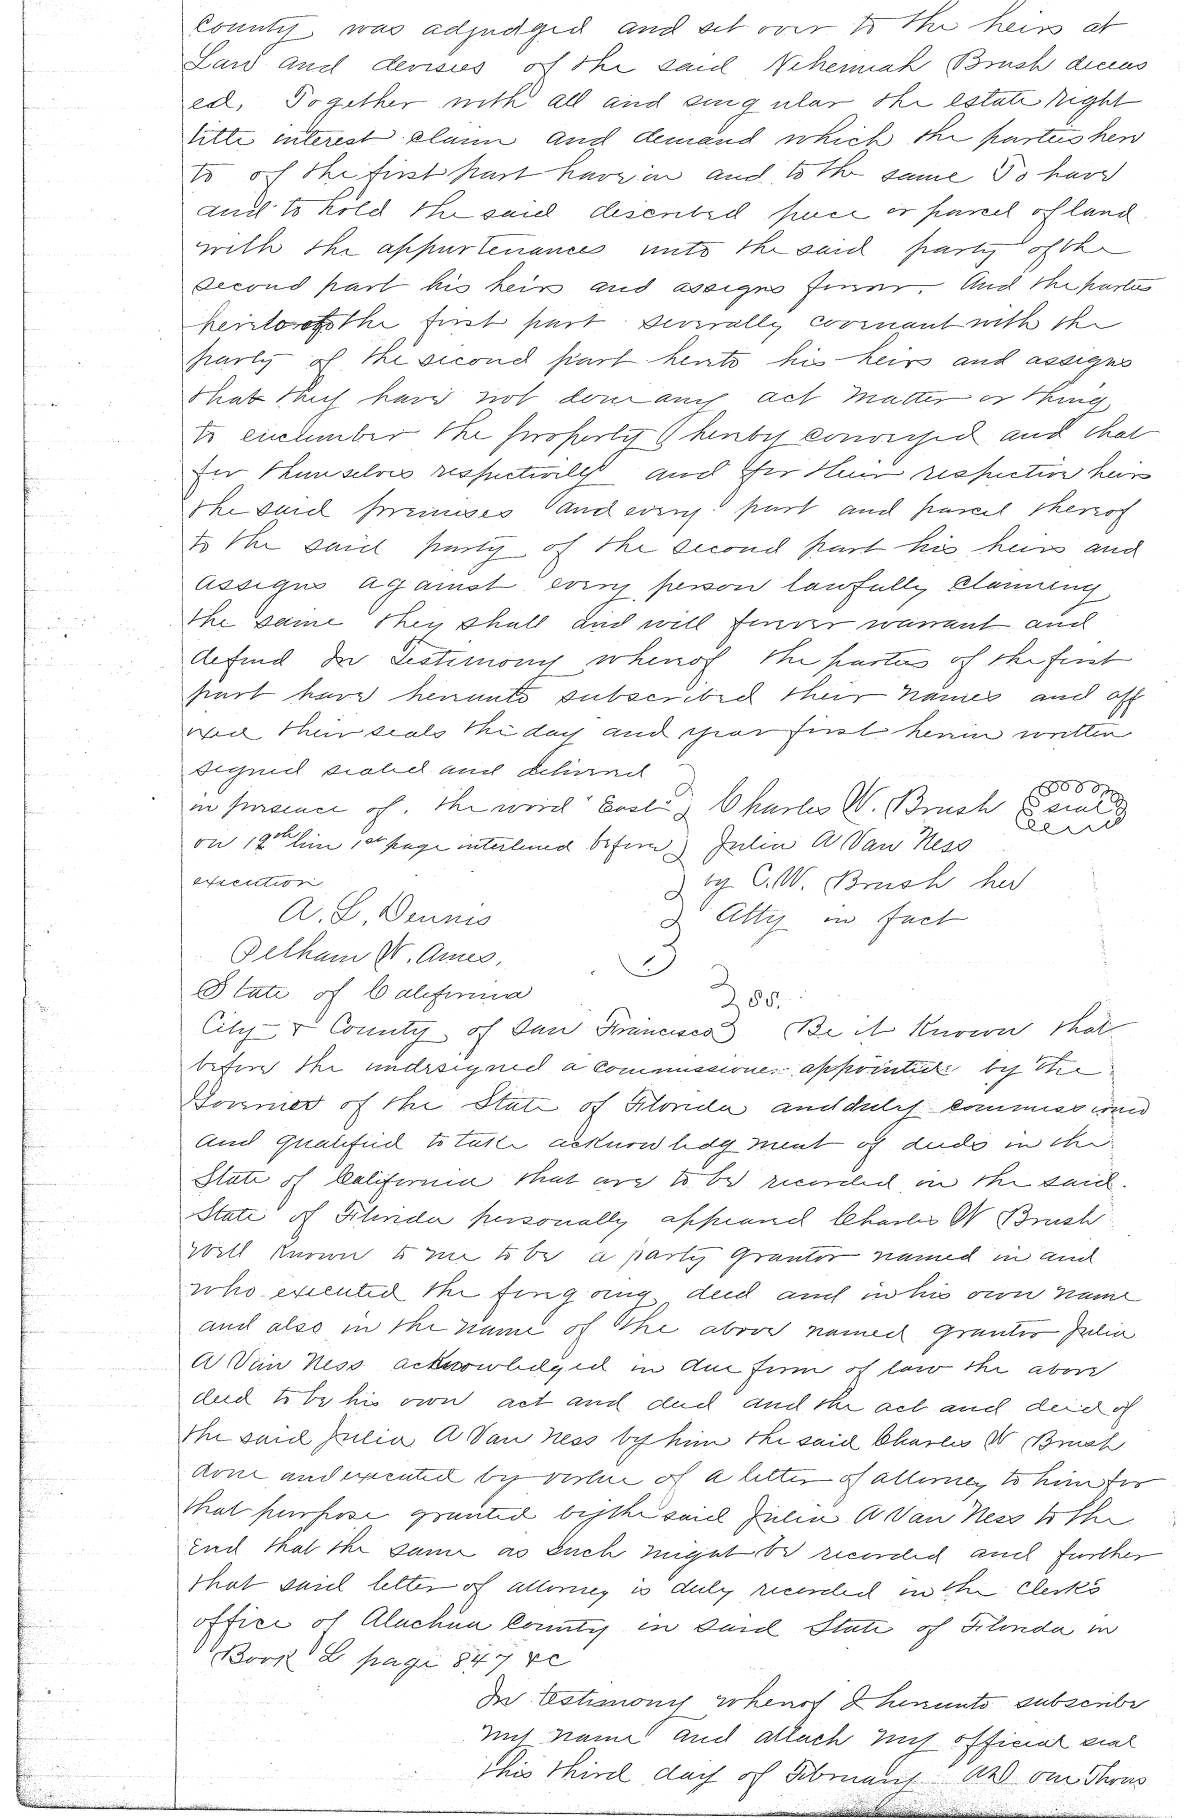 County was adjudged and set over to the heirs at
Law and devisees of the said Nehemiah Brush deceas
ed, Together with all and singular the estate right
title interest claim and demand which the parties here
to of the first part have in and to the same To have
and to hold the said described piece or parcel of land
with the appurtenances unto the said party of the
second part his heirs and assigns forever. And the parties
hereto of the first part severally covenant with the
party of the second part hereto his heirs and assigns
that they have not done any act matter or thing
to encumber the property hereby conveyed and that
for themselves respectively and for their respective heirs
the said premises and every part and parcel thereof
to the said party of the second part his heirs and
assigns against every person lawfully claiming
the same they shall and will forever warrant and
defend In Testimony whereof the parties of the first
part have hereunto subscribed their names and aff
ixed their seals the day and year first herein written
signed sealed and delivered
in presence of. The word "East" Charles W. Brush seal
on 12th line 1st page interlined before Julia A Van Ness
execution by C. W. Brush her
A. L. Dennis Atty in fact
Pelham W. Ames,
State of California ss.
City & County of San Francisco Be it Known that
before the undersigned a commissioner appointed by the
Governor of the State of Florida and duly commissioned
and qualified to take acknowledgment of deeds in the
State of California that are to be recorded in the said
State of Florida personally appeared Charles W Brush
well known to me to be a party grantor named in and
who executed the foregoing deed and in his own name
and also in the name of the above named grantor Julia
A Van Ness acknowledged in due form of law the above
deed to be his own act and deed and the act and deed of
the said Julia A Van Ness by him the said Charles W Brush
done and executed by virtue of a letter of attorney to him for
that purpose granted by the said Julia A Van Ness to the
end that the same as such might be recorded and further
that said letter of attorney is duly recorded in the Clerk's
office of Alachua County in said State of Florida in
Book L page 847 &c
In testimony whereof I hereunto subscribe
my name and attach my official seal
this third day of February AD one Thous